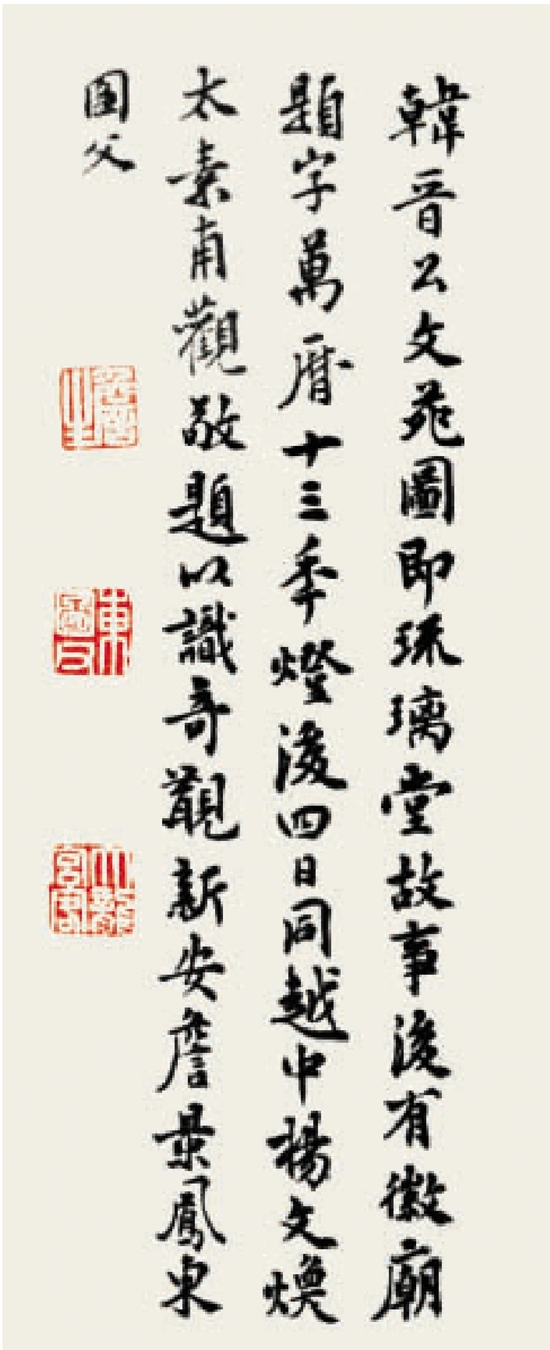 韓晋公文苑圖即琉璃堂故事後有徽廟
題字萬曆十三年燈後四日同越中楊文煥
太素甫觀敬題以識奇觀新安詹景鳳東
圖父